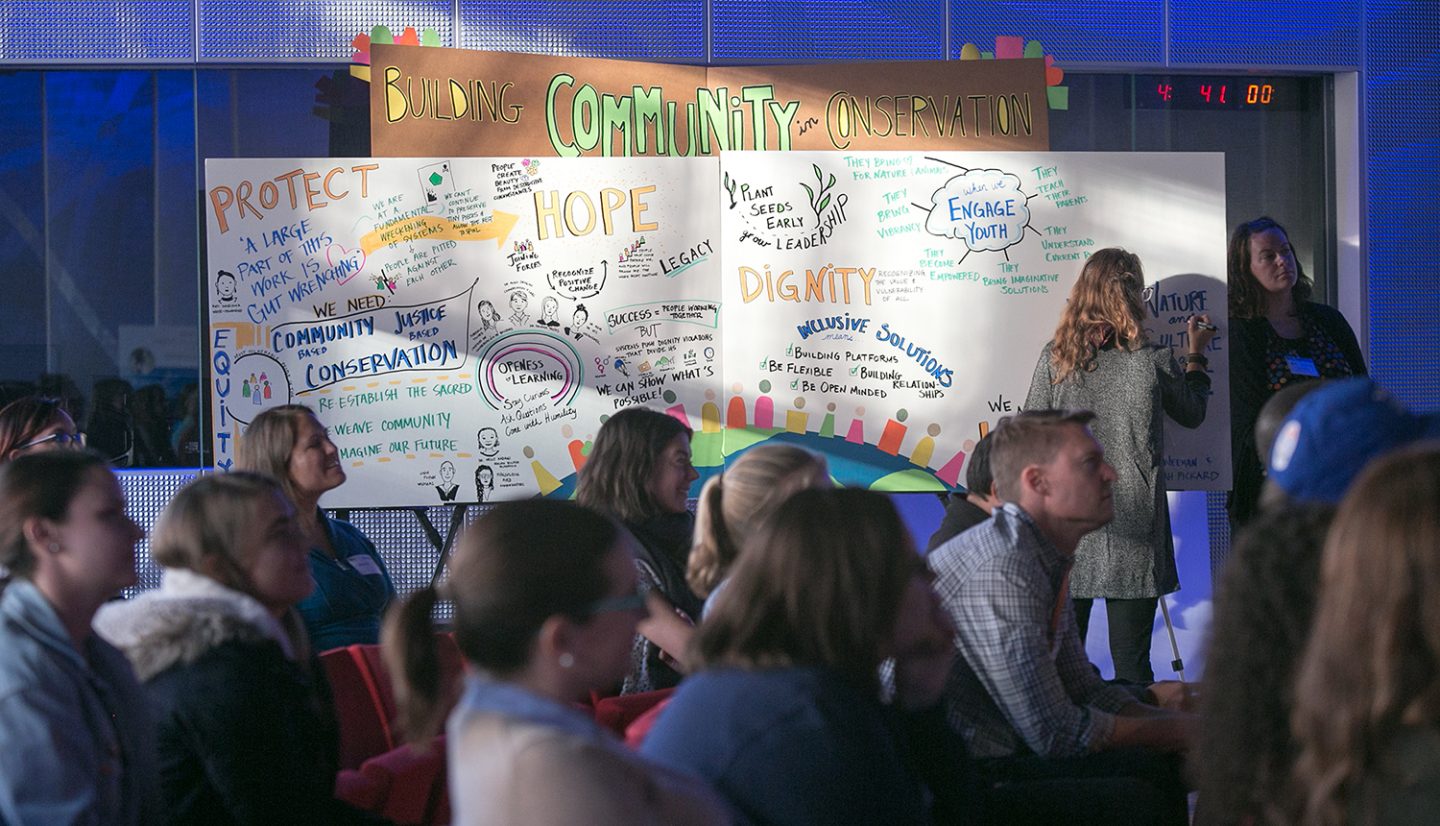 BUILDING COMMUNITY in CONSERVATION
4: 41 00
PROTECT
"A LARGE
PART OF THIS
WORK IS
GUT WRENCHING"
WE ARE
AT A
FUNDAMENTAL
WRECKENING
OF SYSTEMS
WE CAN'T
CONTINUE
TO PRESERVE
TINY PIECES &
ALLOW THE REST
TO
PEOPLE ARE PITTED
AGAINST
EACH OTHER
PEOPLE
CREATE
BEAUTY
FROM DESTRUCTIVE
CIRCUMSTANCES
HOPE
JOINING
FORCES
RECOGNIZE
POSITIVE
CHANGE
LEGACY
WE NEED
COMMUNITY
BASED
JUSTICE
BASED
CONSERVATION
EQUITY
RE-ESTABLISH THE SACRED
WEAVE COMMUNITY
IMAGINE OUR FUTURE
OPENNESS
to LEARNING
Stay Curious
Ask Questions
Come with Humility
SUCCESS = PEOPLE WORKING
TOGETHER
BUT
SYSTEMS PUSH DIGNITY VIOLATIONS
THAT DIVIDE US
WE CAN SHOW WHAT'S
POSSIBLE!
PLANT
SEEDS
EARLY
grow LEADERSHIP
THEY BRING
FOR NATURE / ANIMALS
THEY
BRING
VIBRANCY
when we
ENGAGE
YOUTH
THEY
TEACH
THEIR
PARENTS
THEY
BECOME
EMPOWERED
THEY
BRING IMAGINATIVE
SOLUTIONS
THEY
UNDERSTAND
CURRENT
DIGNITY
RECOGNIZING
THE VALUE &
VULNERABILITY
OF ALL
INCLUSIVE SOLUTIONS
means
BUILDING PLATFORMS
BE FLEXIBLE
BUILDING
RELATION-
SHIPS
BE OPEN MINDED
NATURE
and
CULTURE
PICKARD